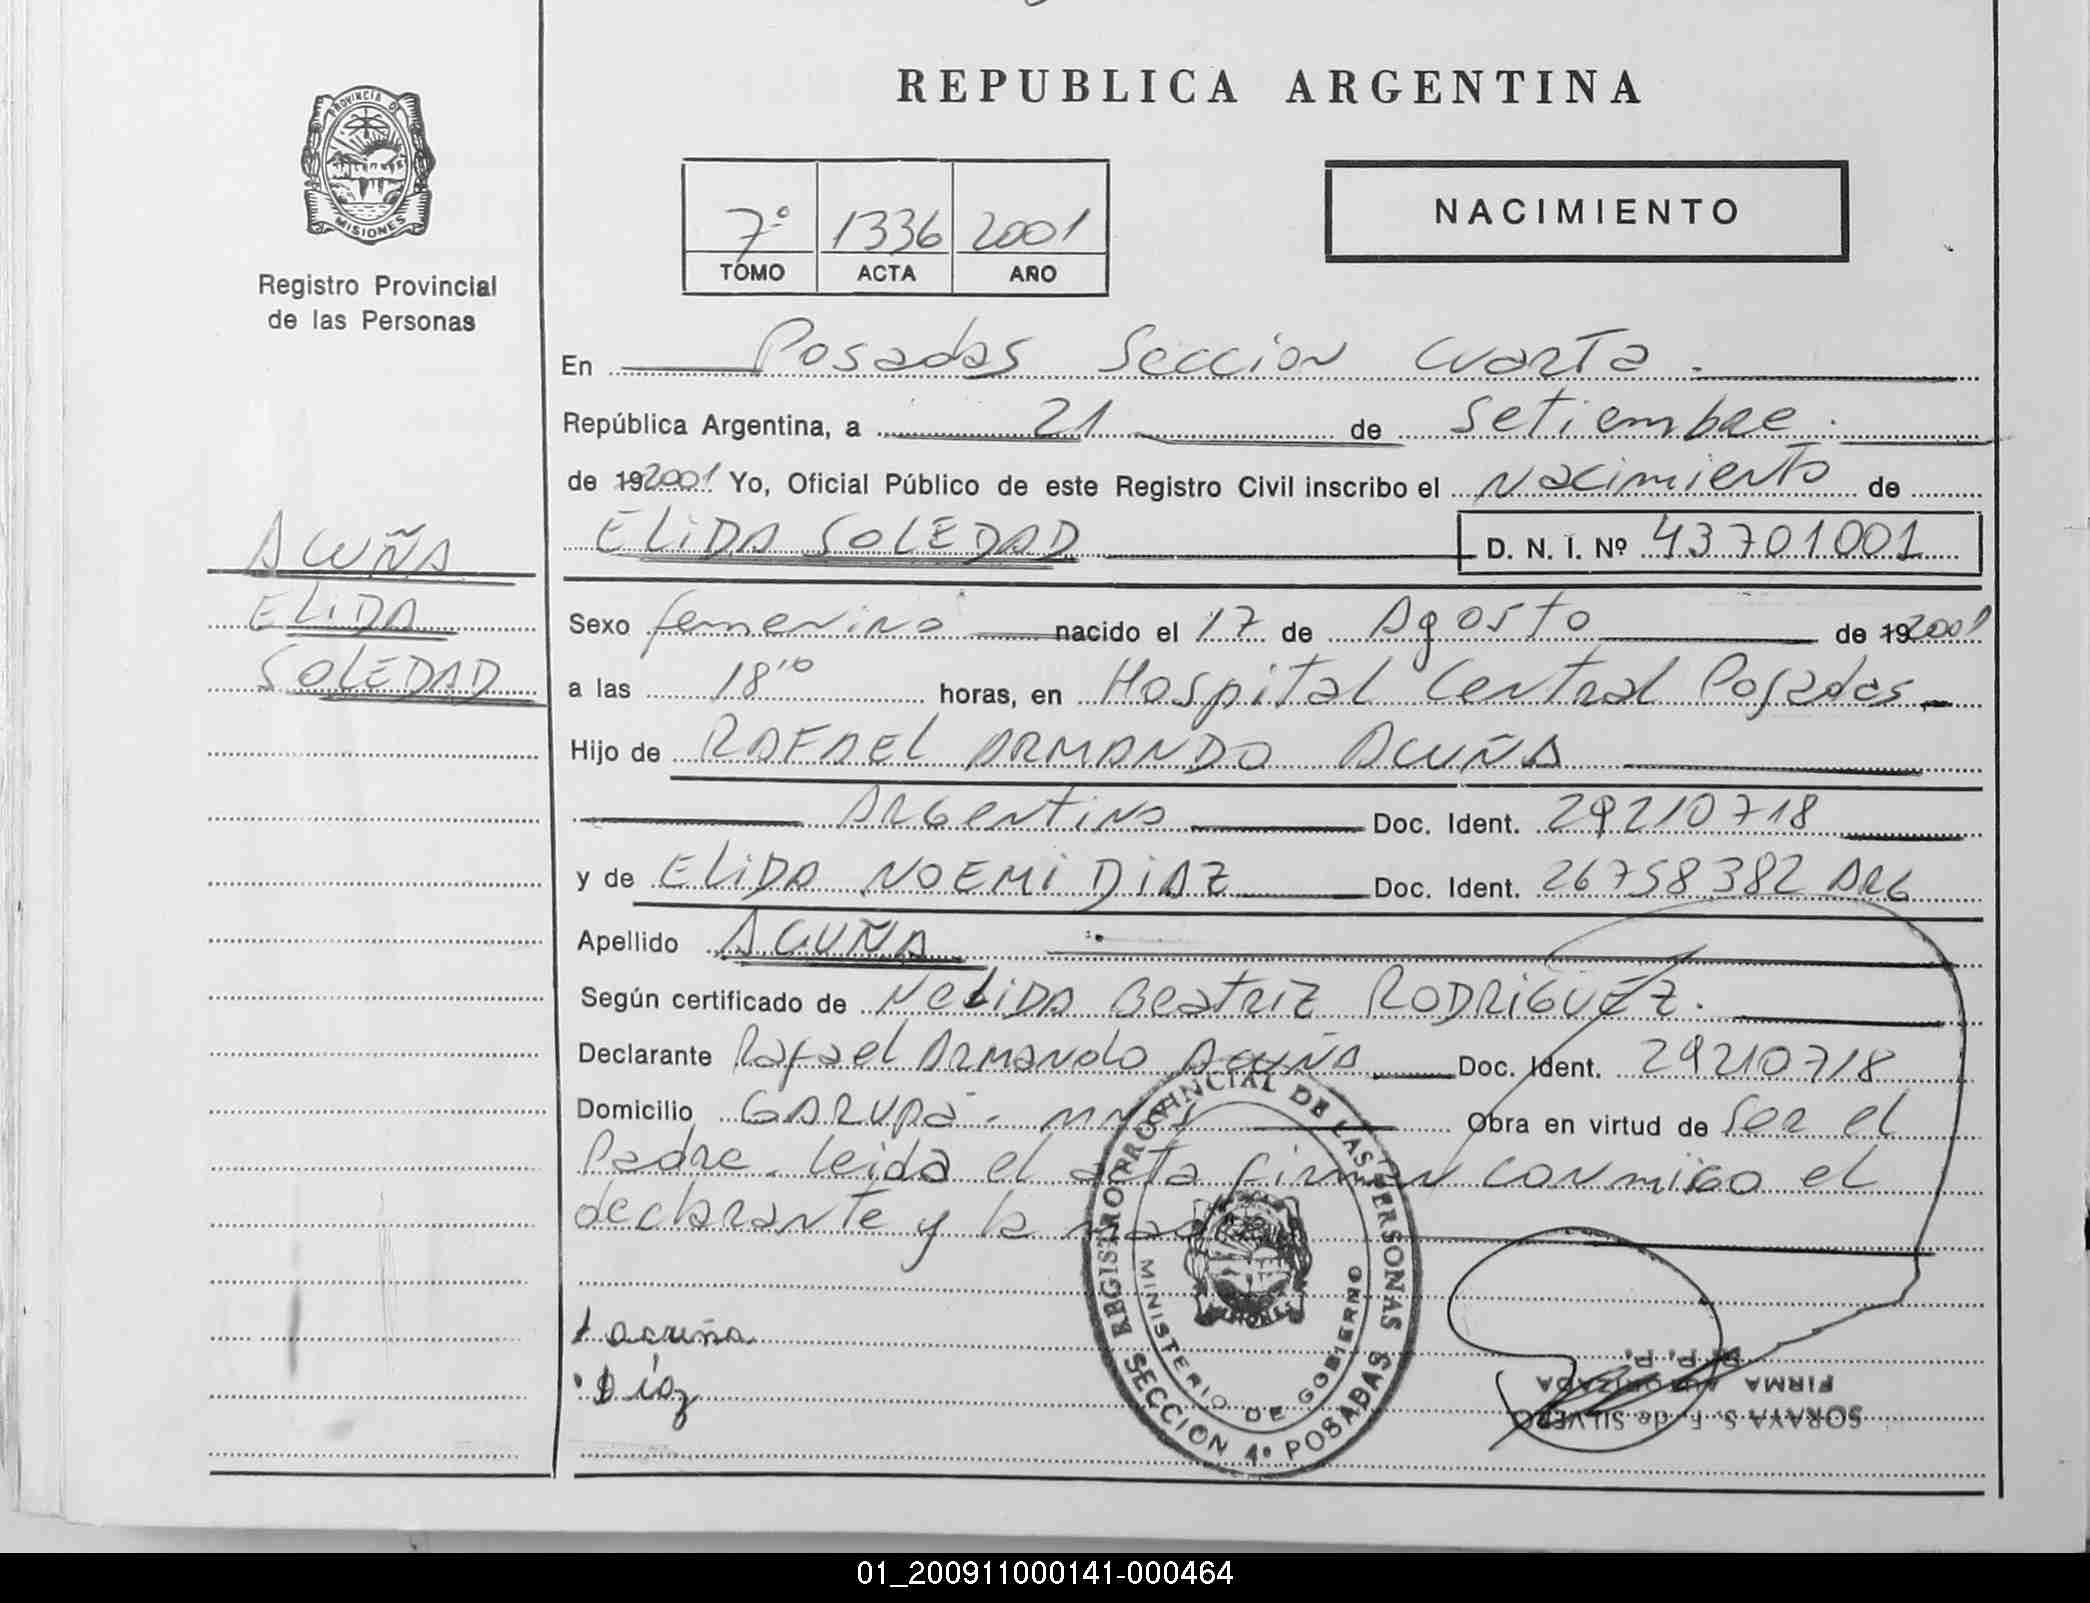 REPUBLICA ARGENTINA
PROVINCIA DE
MISIONES
Registro Provincial
de las Personas
7º 1336 2001
TOMO ACTA AÑO
NACIMIENTO
En Posadas Seccion Cuarta.
República Argentina, a 21 de Setiembre.
de 192001 Yo, Oficial Público de este Registro Civil inscribo el Nacimiento de
ELIDA SOLEDAD D. N. I. Nº 43701001
ACUÑA
ELIDA
SOLEDAD
Sexo femenino nacido el 17 de Agosto de 192001
a las 18'10 horas, en Hospital Central Posadas
Hijo de RAFAEL ARMANDO ACUÑA
Argentino Doc. Ident. 29210718
y de ELIDA NOEMI DIAZ Doc. Ident. 26758382 ARG
Apellido ACUÑA
Según certificado de NELIDA Beatriz RODRIGUEZ.
Declarante Rafael Armando Acuña Doc. Ident. 29210718
Domicilio GARUPA - Mnes Obra en virtud de Ser el
Padre. leida el acta firman conmigo el
declarante y la
acuña
Díaz
REGISTRO PROVINCIAL DE LAS PERSONAS
MINISTERIO DE GOBIERNO
SECCION 4º POSADAS
SORAYA S. F. de SILVERO
FIRMA AUTORIZADA
R. P. P.
01_200911000141-000464